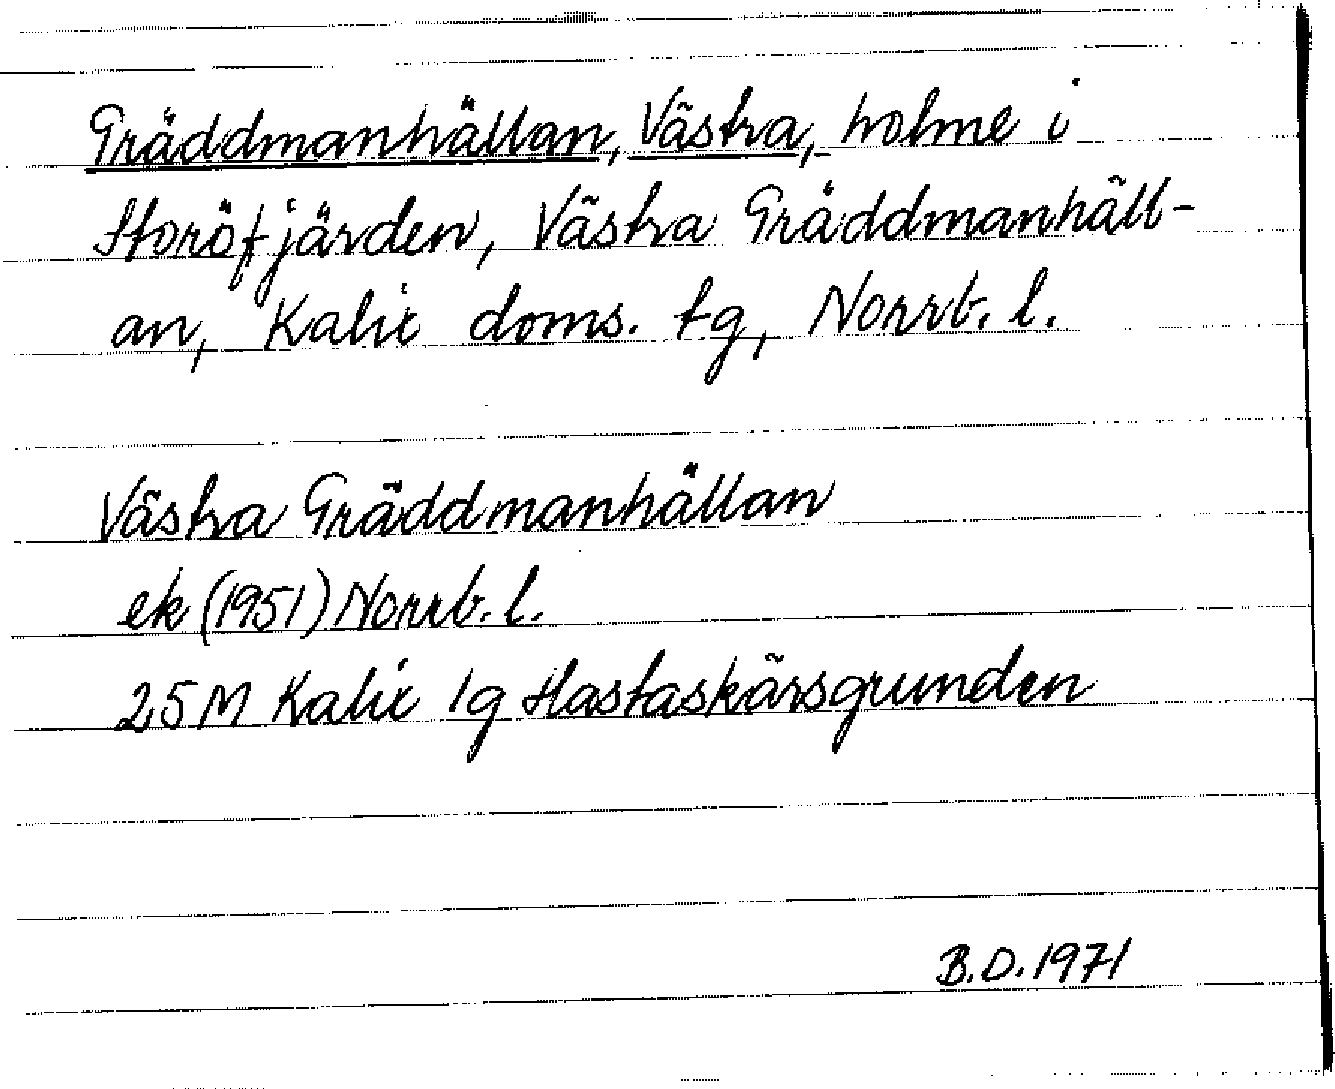 Gräddmanhällan, Västra, holme i
Storöfjärden, Västra Gräddmanhäll-
an, Kalix doms. tg, Norrb. l.
Västra Gräddmanhällan
ek (1951) Norrb. l.
25M Kalix 1g Hastaskärsgrunden
B.D. 1971